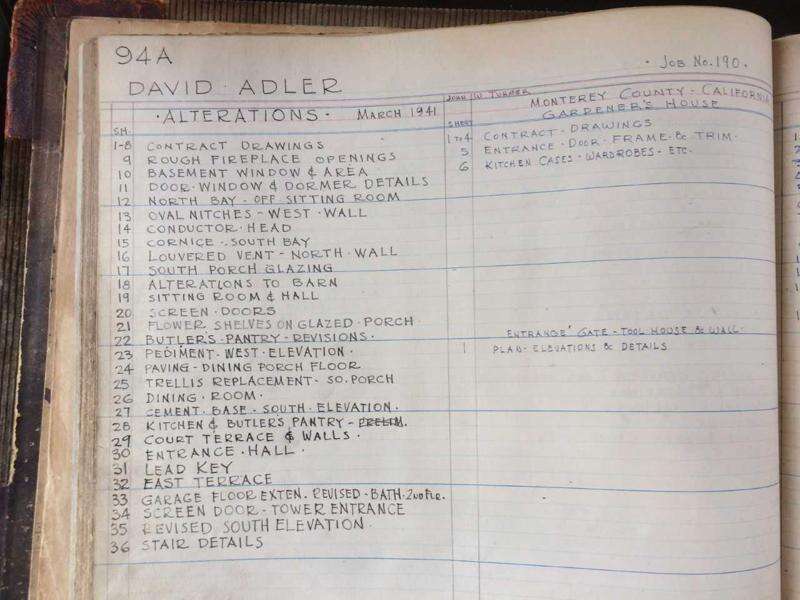 94A
· JOB No. 190 ·
DAVID · ADLER
· ALTERATIONS · MARCH 1941
SH.
1-8 CONTRACT DRAWINGS
9 ROUGH FIREPLACE OPENINGS
10 BASEMENT WINDOW & AREA
11 DOOR · WINDOW & DORMER DETAILS
12 NORTH BAY - OFF SITTING ROOM
13 OVAL NITCHES - WEST · WALL
14 CONDUCTOR · HEAD
15 CORNICE · SOUTH BAY
16 LOUVERED VENT - NORTH · WALL
17 SOUTH PORCH GLAZING
18 ALTERATIONS TO BARN
19 SITTING ROOM & HALL
20 SCREEN · DOORS
21 FLOWER SHELVES ON GLAZED · PORCH
22 BUTLER'S · PANTRY - REVISIONS ·
23 PEDIMENT · WEST · ELEVATION ·
24 PAVING - DINING PORCH FLOOR
25 TRELLIS REPLACEMENT - SO. PORCH
26 DINING · ROOM ·
27 CEMENT · BASE · SOUTH · ELEVATION ·
28 KITCHEN & BUTLERS PANTRY - PRELIM.
29 COURT TERRACE & WALLS ·
30 ENTRANCE · HALL ·
31 LEAD KEY
32 EAST TERRACE
33 GARAGE FLOOR EXTEN. REVISED · BATH · 2ND FLR.
34 SCREEN DOOR - TOWER ENTRANCE
35 REVISED SOUTH ELEVATION ·
36 STAIR DETAILS
JOHN W. TURNER
MONTEREY COUNTY - CALIFORNIA
GARDENER'S HOUSE
SHEET
1 to 4 CONTRACT · DRAWINGS
5 ENTRANCE · DOOR · FRAME · & · TRIM ·
6 KITCHEN CASES · WARDROBES - ETC.
ENTRANCE GATE - TOOL HOUSE & WALL ·
1 PLAN - ELEVATIONS & DETAILS